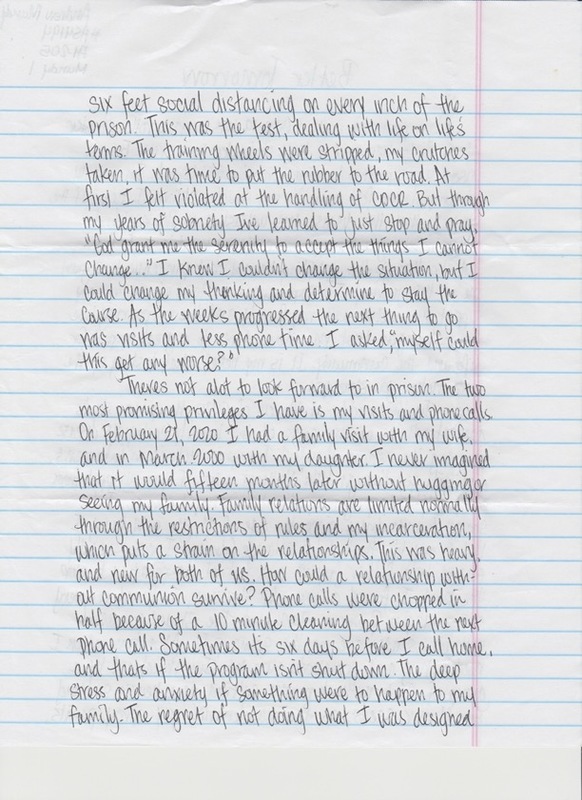 six feet social distancing on every inch of the
prison. This was the test, dealing with life on life's
terms. The training wheels were stripped, my crutches
taken, it was time to put the rubber to the road. At
first I felt violated at the handling of CDCR. But through
my years of sobriety Ive learned to just stop and pray,
"God grant me the serenity to accept the things I cannot
change..." I knew I couldn't change the situation, but I
could change my thinking and determine to stay the
cause. As the weeks progressed the next thing to go
was visits and less phone time. I asked, "myself could
this get any worse?"
Theres not alot to look forward to in prison. The two
most promising privileges I have is my visits and phone calls.
On February 21, 2020 I had a family visit with my wife,
and in March 2000 with my daughter. I never imagined
that it would fifteen months later without hugging or
seeing my family. Family relations are limited normally
through the restrictions of rules and my incarceration,
which puts a strain on the relationships. This was heavy,
and new for both of us. How could a relationship with-
out communion survive? Phone calls were chopped in
half because of a 10 minute cleaning between the next
phone call. Sometimes it's six days before I call home,
and thats if the program isn't shut down. The deep
stress and anxiety if something were to happen to my
family. The regret of not doing what I was designed